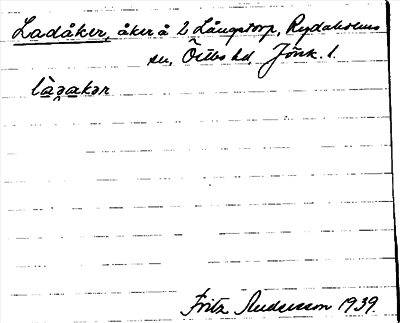 Ladåker, åker å 2 Långstorp, Rydaholms
sn, Östbo hd, Jönk. l.
làʒakər
Fritz Andersson 1939.